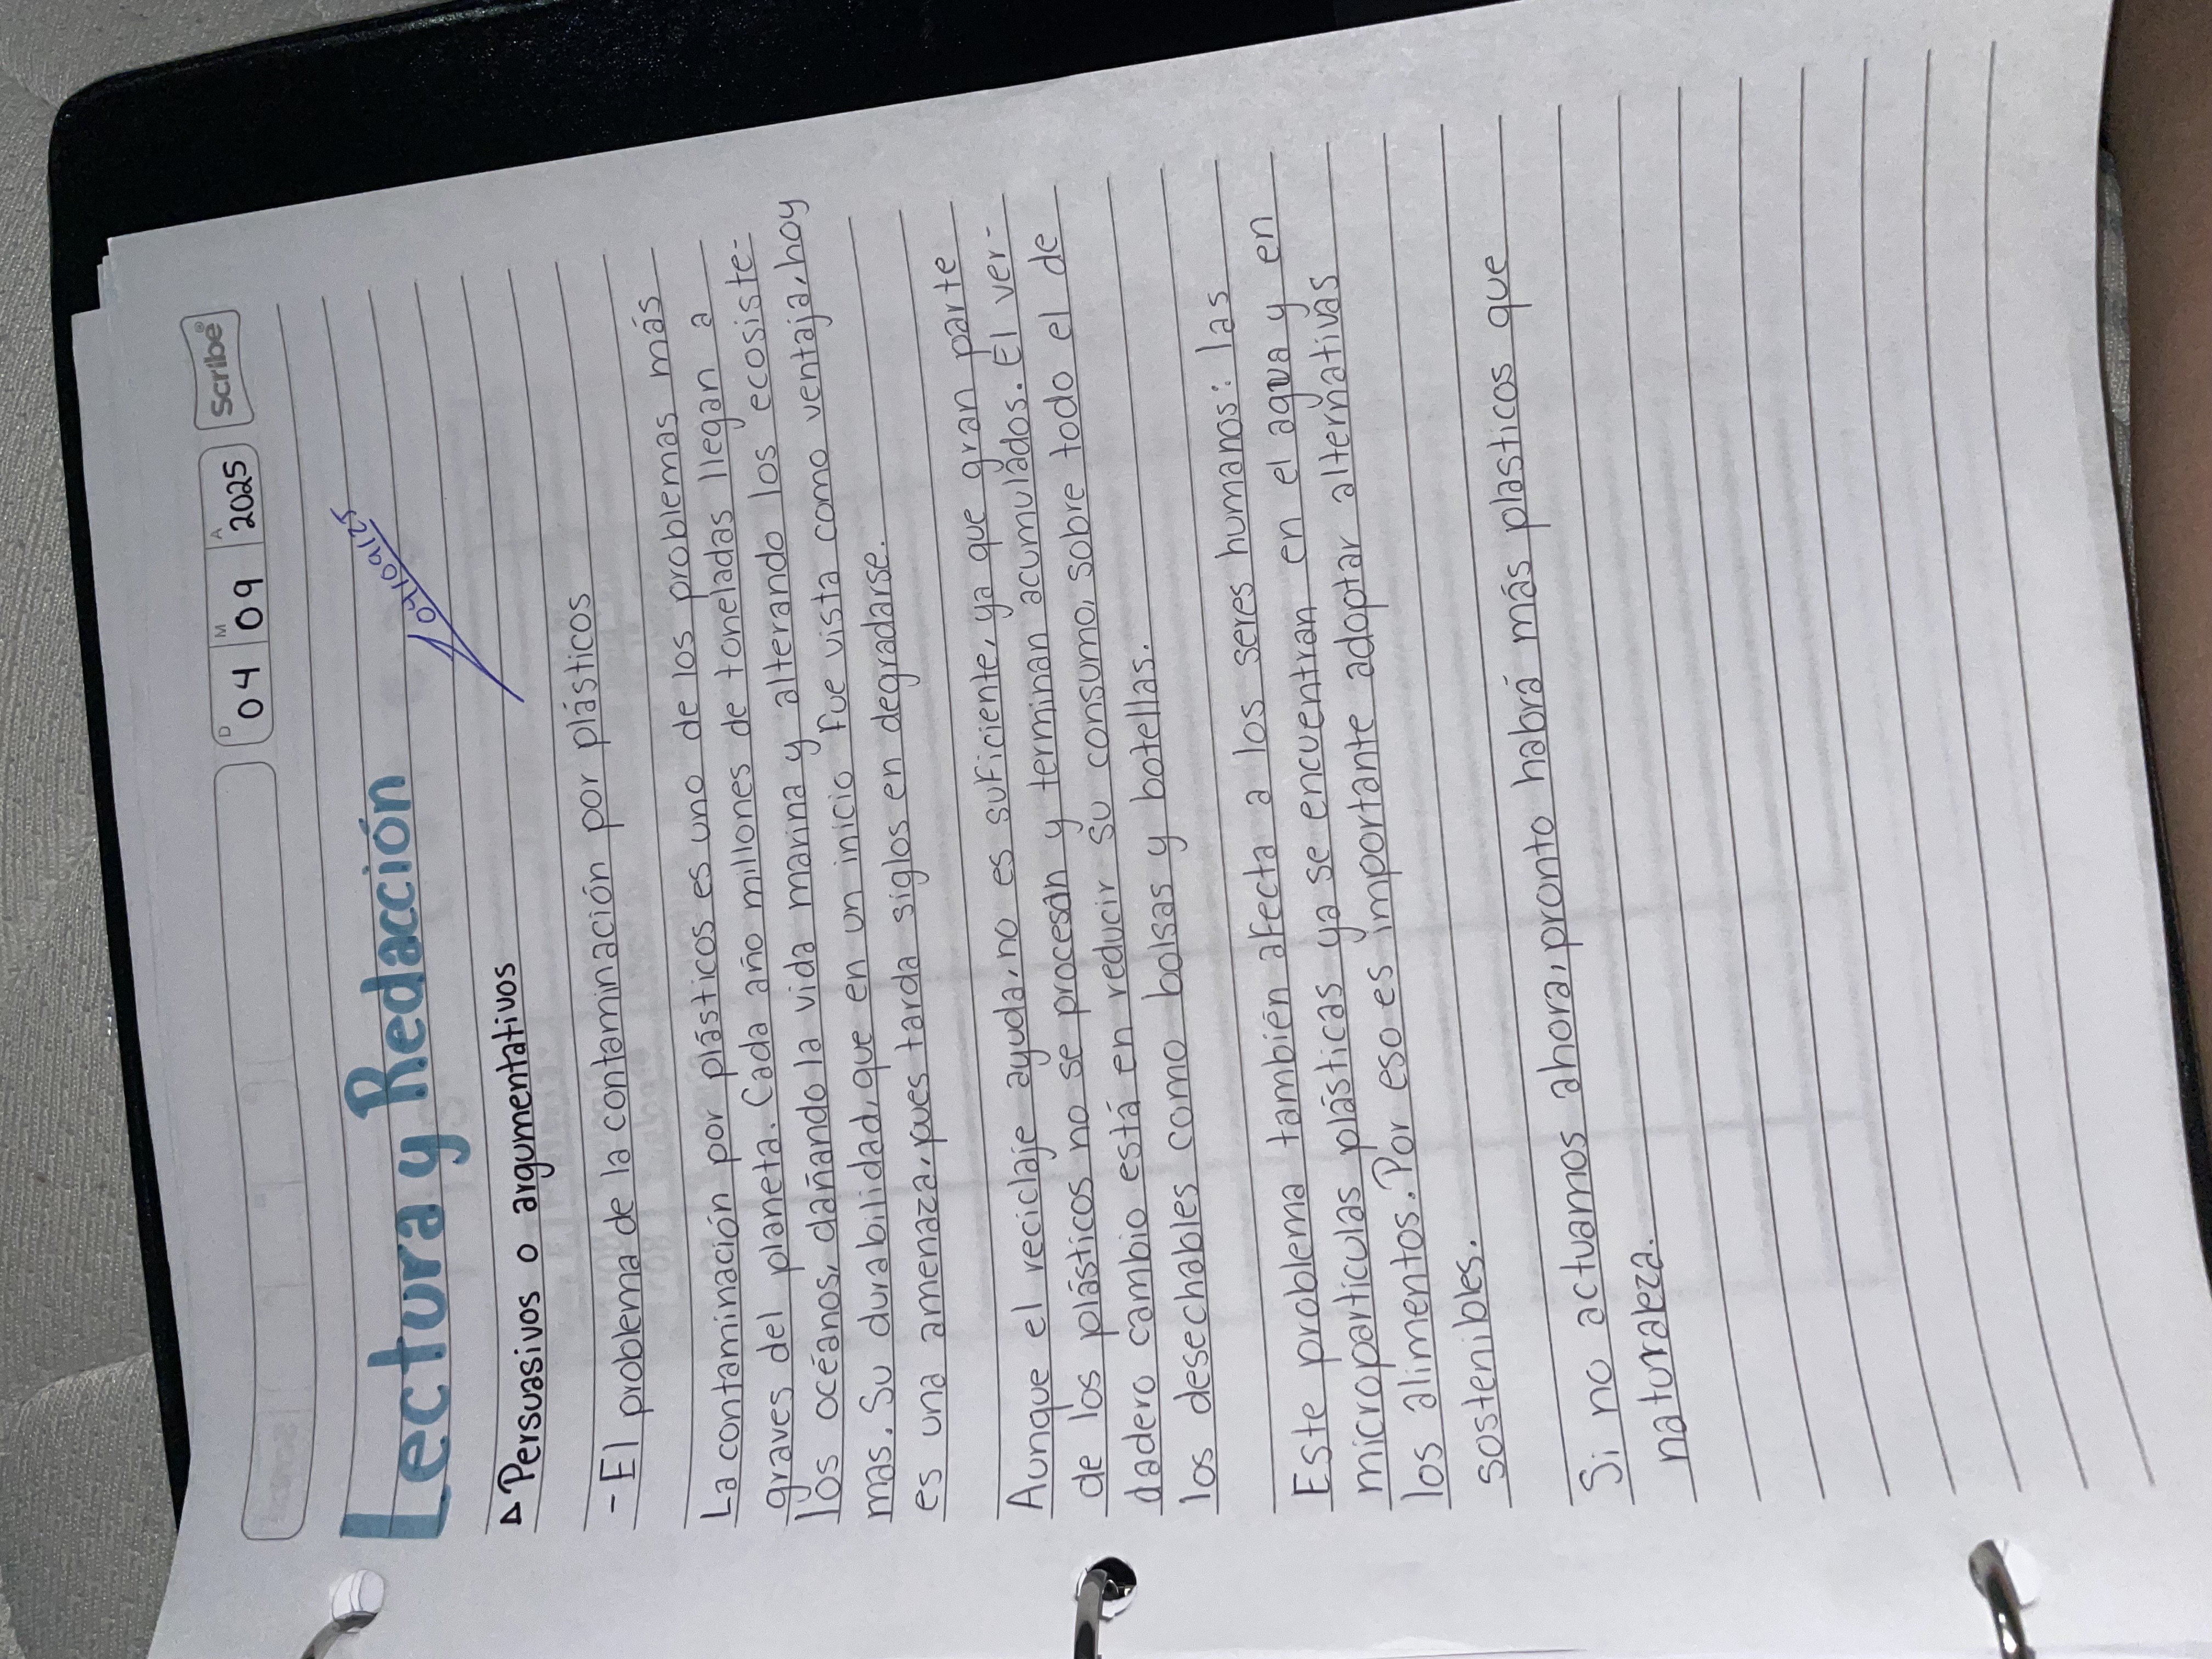 D M A
04 09 2025 Scribe®
Lectura y Redacción
04/09/25
Persuasivos o argumentativos
- El problema de la contaminación por plásticos
La contaminación por plásticos es uno de los problemas más
graves del planeta. Cada año millones de toneladas llegan a
los océanos, dañando la vida marina y alterando los ecosiste-
mas. Su durabilidad, que en un inicio fue vista como ventaja, hoy
es una amenaza, pues tarda siglos en degradarse.
Aunque el reciclaje ayuda, no es suficiente, ya que gran parte
de los plásticos no se procesan y terminan acumulados. El ver-
dadero cambio está en reducir su consumo, sobre todo el de
los desechables como bolsas y botellas.
Este problema también afecta a los seres humanos: las
microparticulas plásticas ya se encuentran en el agua y en
los alimentos. Por eso es importante adoptar alternativas
sostenibles.
Si no actuamos ahora, pronto habrá más plasticos que
naturaleza.